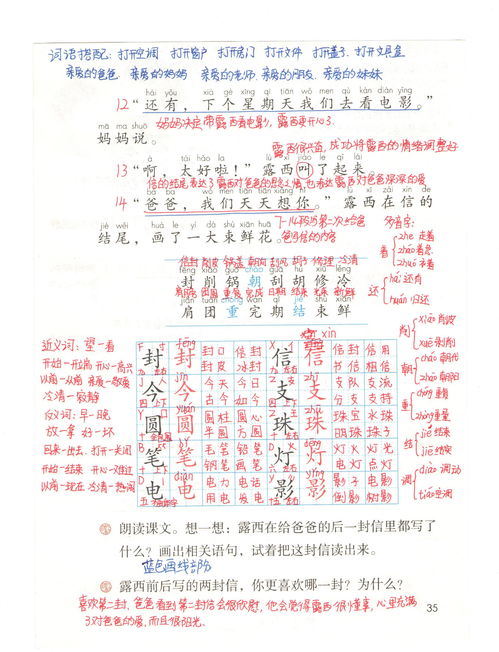 词语搭配：打开空调 打开窗户 打开房门 打开文件 打开盖子 打开文具盒
亲爱的爸爸 亲爱的妈妈 亲爱的老师 亲爱的朋友 亲爱的妹妹
hái yǒu xià gè xīng qī tiān wǒ men qù kàn diàn yǐng
12 “还有，下个星期天我们去看电影。”
妈妈决定带露西看电影，露西要开心了。
mā ma shuō
妈妈说。
露西信写道，成功将露西的情绪调整好
ā tài hǎo la lù xī jiào le qǐ lái
13 “啊，太好啦！”露西叫了起来
信的结尾表达了露西对爸爸的思念之情，也表达露西对爸爸深深的爱
bà ba wǒ men tiān tiān xiǎng nǐ lù xī zài xìn de
14 “爸爸，我们天天想你。”露西在信的
7-14段为第二次给爸爸写信的内容
jié wěi huà le yí dà shù xiān huā
结尾，画了一大束鲜花。
多音字：
着 zhe 走着
zháo 着急
zhuó 衣着
还 hái 还有
huán 归还
削 xiāo 削皮
xuē 削弱
朝 cháo 朝代
zhāo 朝阳
重
zhòng 重量
结 jiē 结果
jié 结束
调 diào 调动
tiáo 空调
fēng xiāo guō cháo guā hú xiū lěng
封削锅朝刮胡修冷
jiān tuán chóng wán qī jié shù xiān
肩团重完期结束鲜
近义词：望—看
开始—开端 开心—高兴
以前—从前 亲爱—敬爱
冷清—寂静
反义词：早—晚
放—拿 好—坏
回来—出去 打开—关闭
开始—结束 开心—难过
以前—现在 冷清—热闹
封 封口 信封 封皮 冰封
信 信封 信用 书信 相信
今 今天 今日 古今 如今
支 支队 支流 支持 支出
圆 圆柱 圆心 半圆 方圆
珠 珠宝 水珠 明珠 珠子
笔 毛笔 铅笔 钢笔 笔画
灯 灯火 灯光 电灯 点灯
电 电力 电话 用电 发电
影 影子 电影 倒影 树影
朗读课文。想一想：露西在给爸爸的后一封信里都写了
什么？画出相关语句，试着把这封信读出来。
蓝色画线部分
露西前后写的两封信，你更喜欢哪一封？为什么？
喜欢第二封，爸爸看到第二封信会很欣慰，他会觉得露西很懂事，心里充满
了对爸爸的爱，而且很阳光。
35